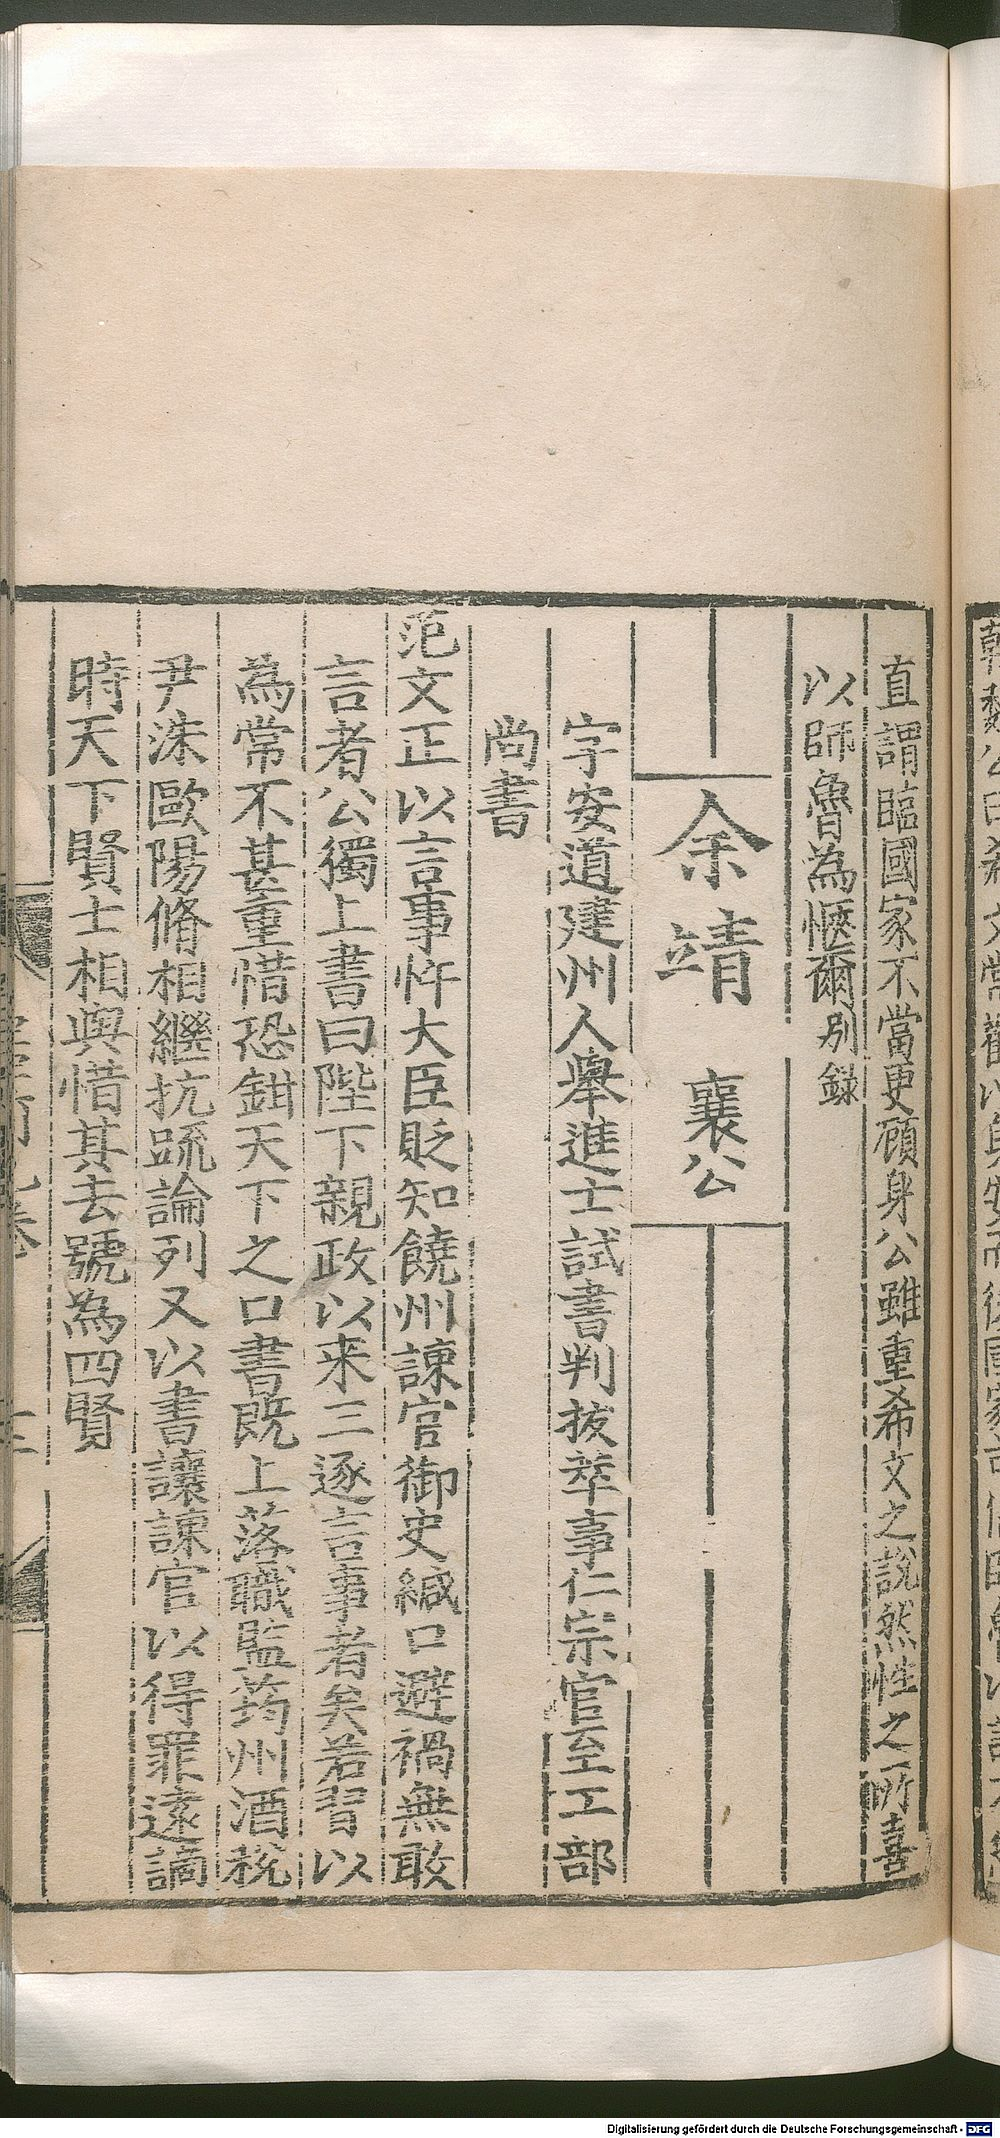 直謂臨國家不當更顧身公雖重希文之說然性之所喜
以師魯為愜爾別録
余靖 襄公
字安道建州人舉進士試書判拔萃事仁宗官至工部
尚書
范文正以言事忤大臣貶知饒州諫官御史緘口避禍無敢
言者公獨上書曰陛下親政以来三逐言事者矣若習以
為常不甚重惜恐鉗天下之口書既上落職監筠州酒稅
尹洙歐陽脩相繼抗疏論列又以書讓諫官以得罪遠謫
時天下賢士相與惜其去號為四賢
Digitalisierung gefördert durch die Deutsche Forschungsgemeinschaft - DFG